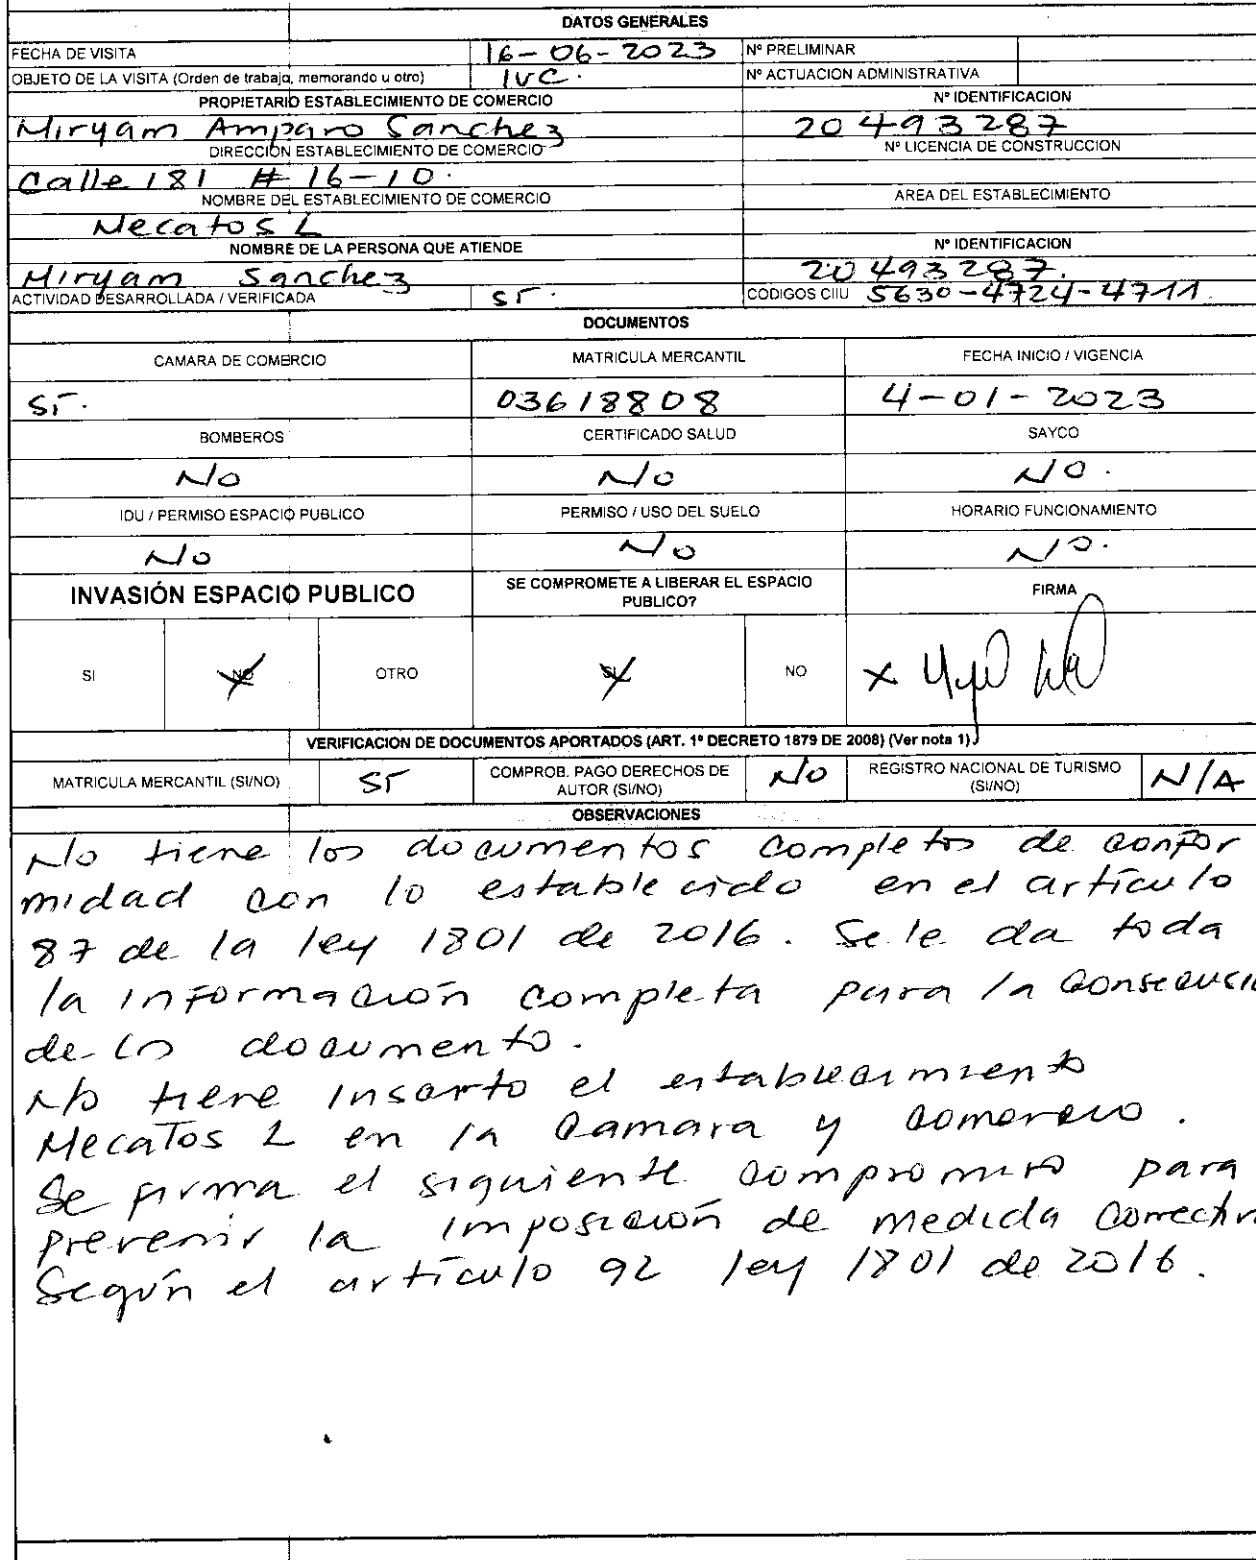 DATOS GENERALES
FECHA DE VISITA 16-06-2023 Nº PRELIMINAR
OBJETO DE LA VISITA (Orden de trabajo, memorando u otro) IVC. Nº ACTUACION ADMINISTRATIVA
PROPIETARIO ESTABLECIMIENTO DE COMERCIO Nº IDENTIFICACION
Miryam Amparo Sanchez 20493287
DIRECCIÓN ESTABLECIMIENTO DE COMERCIO Nº LICENCIA DE CONSTRUCCION
Calle 181 # 16-10.
NOMBRE DEL ESTABLECIMIENTO DE COMERCIO AREA DEL ESTABLECIMIENTO
Mecatos L
NOMBRE DE LA PERSONA QUE ATIENDE Nº IDENTIFICACION
Miryam Sanchez 20493287.
ACTIVIDAD DESARROLLADA / VERIFICADA SI. CODIGOS CIIU 5630-4724-4711.
DOCUMENTOS
CAMARA DE COMERCIO MATRICULA MERCANTIL FECHA INICIO / VIGENCIA
SI. 03618808 4-01-2023
BOMBEROS CERTIFICADO SALUD SAYCO
No No No.
IDU / PERMISO ESPACIO PUBLICO PERMISO / USO DEL SUELO HORARIO FUNCIONAMIENTO
No No No.
INVASIÓN ESPACIO PUBLICO SE COMPROMETE A LIBERAR EL ESPACIO PUBLICO? FIRMA
SI NO OTRO SI NO X
VERIFICACION DE DOCUMENTOS APORTADOS (ART. 1º DECRETO 1879 DE 2008) (Ver nota 1)
MATRICULA MERCANTIL (SI/NO) SI COMPROB. PAGO DERECHOS DE AUTOR (SI/NO) No REGISTRO NACIONAL DE TURISMO (SI/NO) N/A
OBSERVACIONES
No tiene los documentos completos de confor
midad con lo establecido en el artículo
87 de la ley 1801 de 2016. Se le da toda
la información completa para la consecusió
de los documento.
No tiene inserto el establecimiento
Mecatos L en la Camara y comercio.
Se firma el siguiente compromiso para
prevenir la imposición de medida correctiva
Según el artículo 92 ley 1801 de 2016.